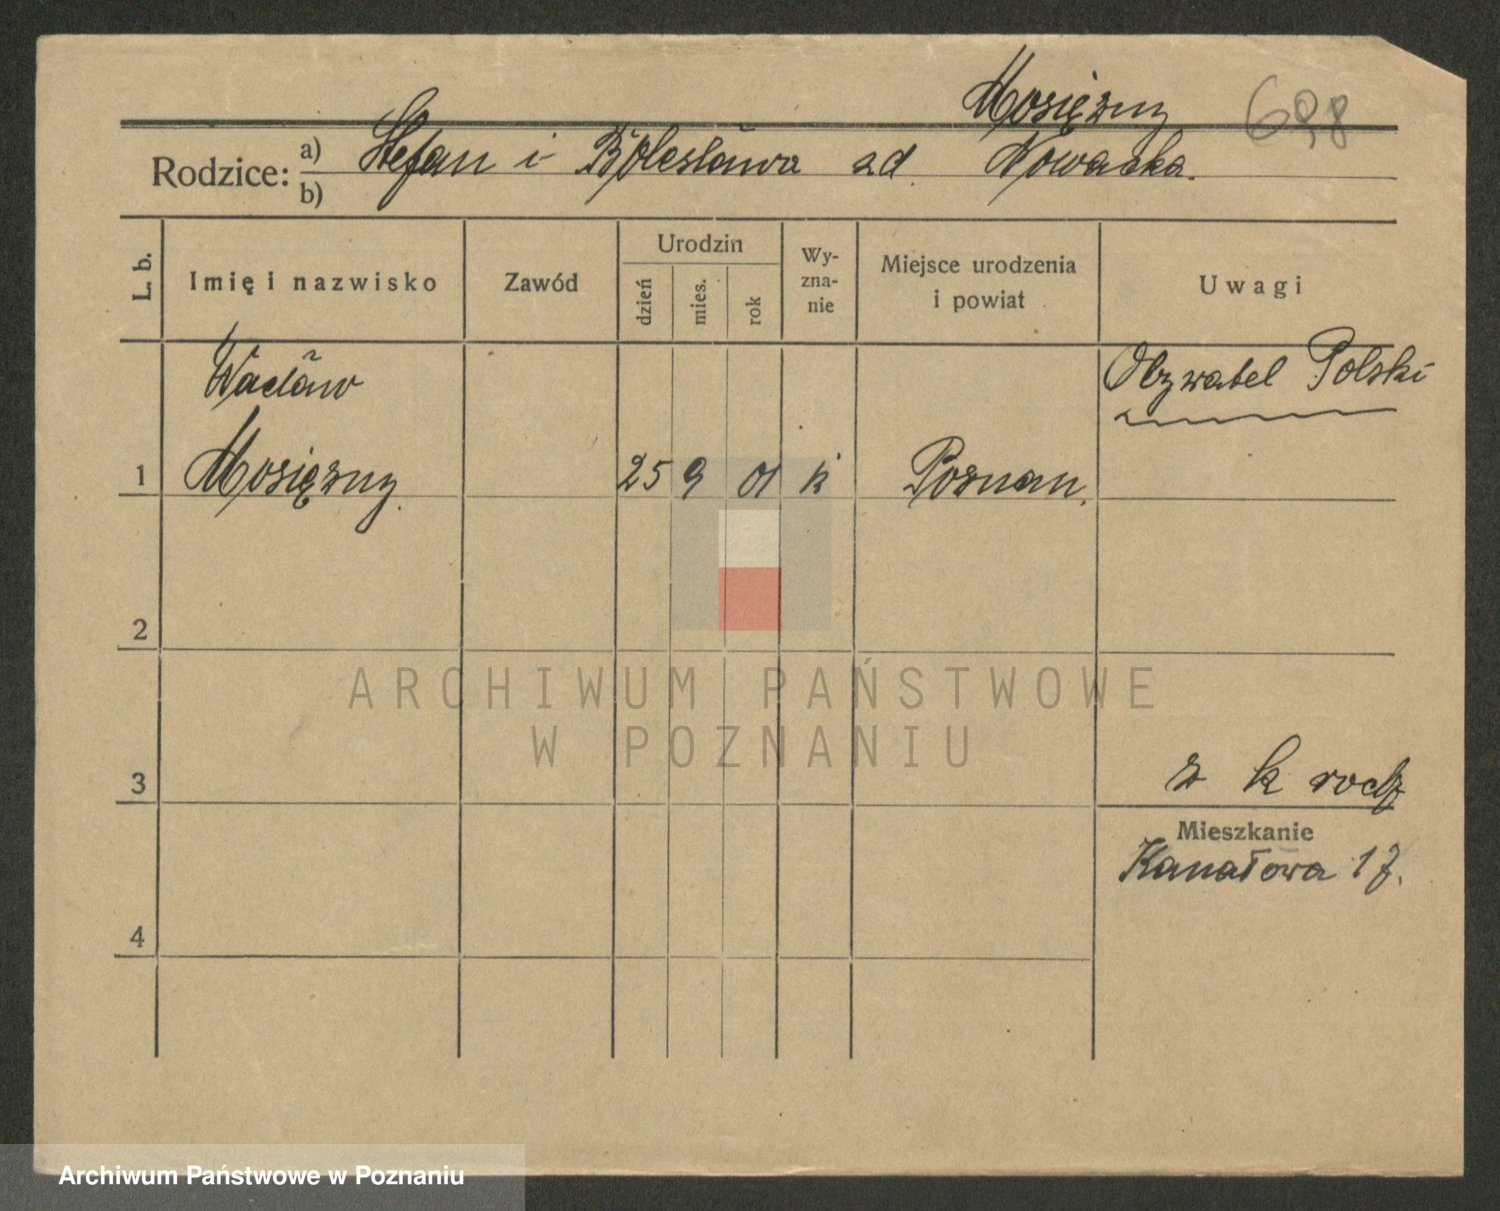 Mosiężny 698
Rodzice: a) Stefan i Bolesława zd. Nowacka.
b)
L. b. Imię i nazwisko Zawód Urodzin dzień mies. rok Wy-zna-nie Miejsce urodzenia i powiat Uwagi
Wacław Obywatel Polski
1 Mosiężny. 25 9 01 k Poznan.
2
ARCHIWUM PAŃSTWOWE
W POZNANIU
3 z k rodz
Mieszkanie
Kanałowa 17.
4
Archiwum Państwowe w Poznaniu